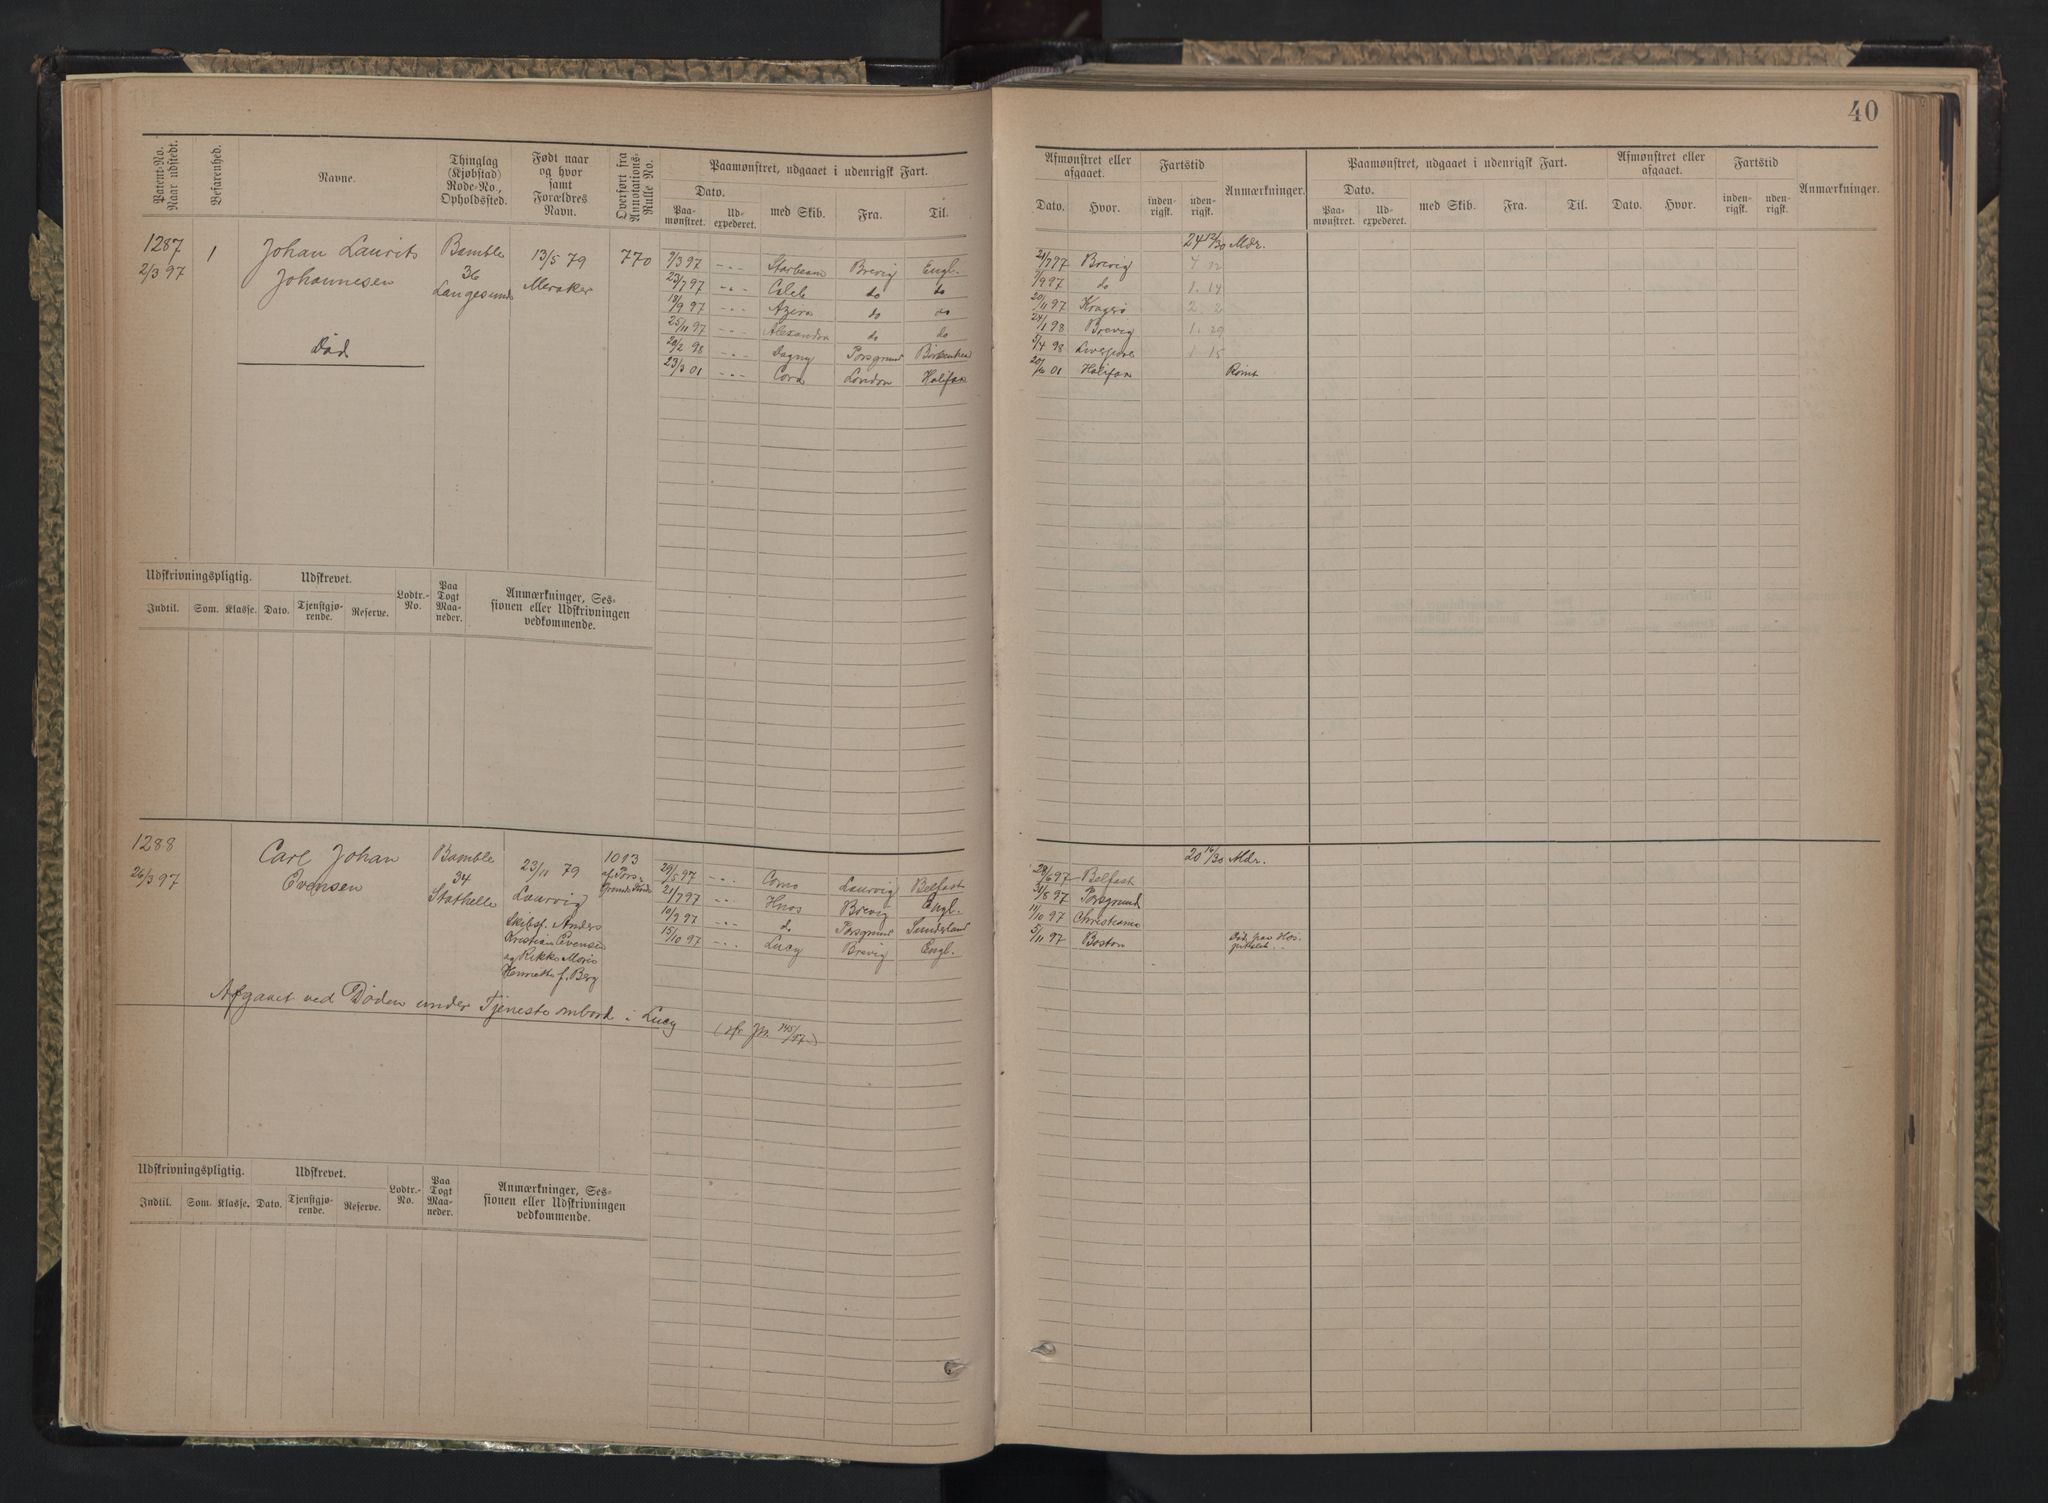 40
Patent-No. Naar udstedt.
Befarenhed.
Navne.
Thinglag (Kjøbstad) Rode-No., Opholdssted.
Født naar og hvor samt Forældres Navn.
Overført fra Annotations-Rulle No.
Paamønstret, udgaaet i udenrigsk Fart.
Dato.
Paa-mønstret.
Ud-expederet.
med Skib.
Fra.
Til.
Afmønstret eller afgaaet.
Dato.
Hvor.
Fartstid
inden-rigsk.
uden-rigsk.
Anmærkninger.
Paamønstret, udgaaet i udenrigsk Fart.
Dato.
Paa-mønstret.
Ud-expederet.
med Skib.
Fra.
Til.
Afmønstret eller afgaaet.
Dato.
Hvor.
Fartstid
inden-rigsk.
uden-rigsk.
Anmærkninger.
1287
2/3 97
1
Johan Laurits
Johannesen
Død
Bamble
36
Langesund
13/5 79
Meraker
770
24 12/30 Mdr.
9/3 97 - " - Starbeam Brevig Engl. 21/7 97 Brevig 4. 12
23/7 97 - " - Caleb do do 7/9 97 do 1. 14
18/9 97 - " - Azira do do 20/11 97 Kragerø 2. 2
25/11 97 - " - Alexandra do do 24/1 98 Brevig 1. 29
20/2 98 - " - Dagny Porsgrund Birkenhead 5/4 98 Liverpool 1. 15
23/3 01 - " - Cora London Halifax 01 Halifax Rømt
Udskrivningspligtig.
Udskrevet.
Lodtr.-No.
Paa Togt Maa-neder.
Anmærkninger, Ses-
sionen eller Udskrivningen
vedkommende.
Indtil.
Som.
Klasse.
Dato.
Tjenstgjø-rende.
Reserve.
1288
26/3 97
Carl Johan
Evensen
Bamble
34
Stathelle
23/11 79
Laurvig
Skibsf. Anders
Kristian Evensen
og Rikke Marie
Henriette f. Berg
1013
af Pors-
grunds Kreds
20 16/30 Mdr.
29/5 97 - " - Como Laurvig Belfast 28/6 97 Belfast
21/7 97 - " - Huos Brevig Engl. 31/8 97 Porsgrund
10/9 97 - " - do Porsgrund Sunderland 11/10 97 Christiania
15/10 97 - " - Lucy Brevig Engl. 5/11 97 Boston Død paa Hos-
pitalet.
Afgaaet ved Døden under Tjeneste ombord i Lucy (cfr. Jn. 145/97)
Udskrivningspligtig.
Udskrevet.
Lodtr.-No.
Paa Togt Maa-neder.
Anmærkninger, Ses-
sionen eller Udskrivningen
vedkommende.
Indtil.
Som.
Klasse.
Dato.
Tjenstgjø-rende.
Reserve.